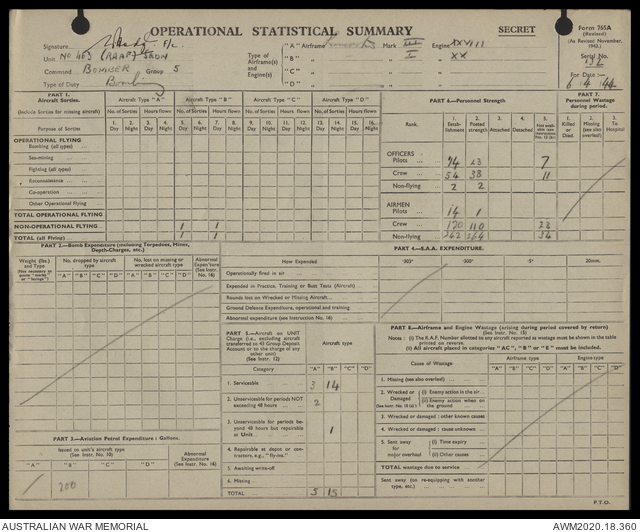 OPERATIONAL STATISTICAL SUMMARY
SECRET
Form 765A
(Revised)
(As Revised November, 1943.)
Signature F/L.
Unit NO 463 (RAAF) SQDN
Command BOMBER Group 5
Type of Duty Bombing
Type of Airframe(s) and Engine(s)
"A" Airframe Lancaster Mark III Engine XXVIII
"B" " " I " XX
"C" " " "
"D" " " "
Serial No.
For Date:—
6.4.44
PART 1.
Aircraft Sorties.
(Include Sorties for missing aircraft)
Aircraft Type "A" Aircraft Type "B" Aircraft Type "C" Aircraft Type "D"
No. of Sorties Hours flown No. of Sorties Hours flown No. of Sorties Hours flown No. of Sorties Hours flown
Purpose of Sorties
1. Day 2. Night 3. Day 4. Night 5. Day 6. Night 7. Day 8. Night 9. Day 10. Night 11. Day 12. Night 13. Day 14. Night 15. Day 16. Night
OPERATIONAL FLYING
Bombing (all types)
Sea-mining
Fighting (all types)
Reconnaissance
Co-operation
Other Operational Flying
TOTAL OPERATIONAL FLYING
NON-OPERATIONAL FLYING 1 1
TOTAL (all Flying) 1 1
PART 6—Personnel Strength
Rank.
1. Establishment 2. Posted strength 3. Attached 4. Detached 5.
OFFICERS
Pilots 74 23 7
Crew 54 38 11
Non-flying 2 2
AIRMEN
Pilots 14 1
Crew 170 110 23
Non-flying 242 264 34
PART 7.
Personnel Wastage during period.
1. Killed or Died. 2. Missing (see also overleaf) 3. To Hospital
PART 2—Bomb Expenditure (including Torpedoes, Mines, Depth-Charges, etc.)
Weight (lbs.) and Type
No. dropped by aircraft type
No. lost on missing or wrecked aircraft type
Abnormal Expenditure (See Instr. No. 16)
"A" "B" "C" "D" "A" "B" "C" "D"
PART 4.—S.A.A. EXPENDITURE.
How Expended ·303" ·300" ·5" 20mm.
Operationally fired in air
Expended in Practice, Training or Butt Tests (Aircraft)
Rounds lost on Wrecked or Missing Aircraft
Ground Defence Expenditure, operational and training
Abnormal expenditure (see Instruction No. 16)
PART 5.—Aircraft on UNIT Charge (i.e., excluding aircraft transferred to 43 Group Deposit Account or to the charge of any other unit)
(See Instr. 12)
Aircraft type
Category "A" "B" "C" "D"
1. Serviceable 3 14
2. Unserviceable for periods NOT exceeding 48 hours 2
3. Unserviceable for periods beyond 48 hours but repairable at Unit 1
4. Repairable at depot or contractors, e.g., "fly-ins."
5. Awaiting write-off
6. Missing
TOTAL 5 15
PART 8.—Airframe and Engine Wastage (arising during period covered by return)
(See Instr. No. 15)
Notes : (i) The R.A.F. Number allotted to any aircraft reported as wastage must be shown in the table printed on reverse.
(ii) All aircraft placed in categories "AC", "B" or "E" must be included.
Cause of Wastage
Airframe type Engine type
"A" "B" "C" "D" "A" "B" "C" "D"
1. Missing (see also overleaf)
2. Wrecked or Damaged
(i) Enemy action in the air
(ii) Enemy action when on the ground
3. Wrecked or damaged : other known causes
4. Wrecked or damaged : cause unknown
5. Sent away for major overhaul
(i) Time expiry
(ii) Other causes
TOTAL wastage due to service
Sent away (on re-equipping with another type, etc.)
PART 3.—Aviation Petrol Expenditure : Gallons.
Issued to unit's aircraft type
(See Instr. No. 10)
Abnormal Expenditure
(See Instr. No. 16)
"A" "B" "C" "D"
200
P.T.O.
AUSTRALIAN WAR MEMORIAL
AWM2020.18.360